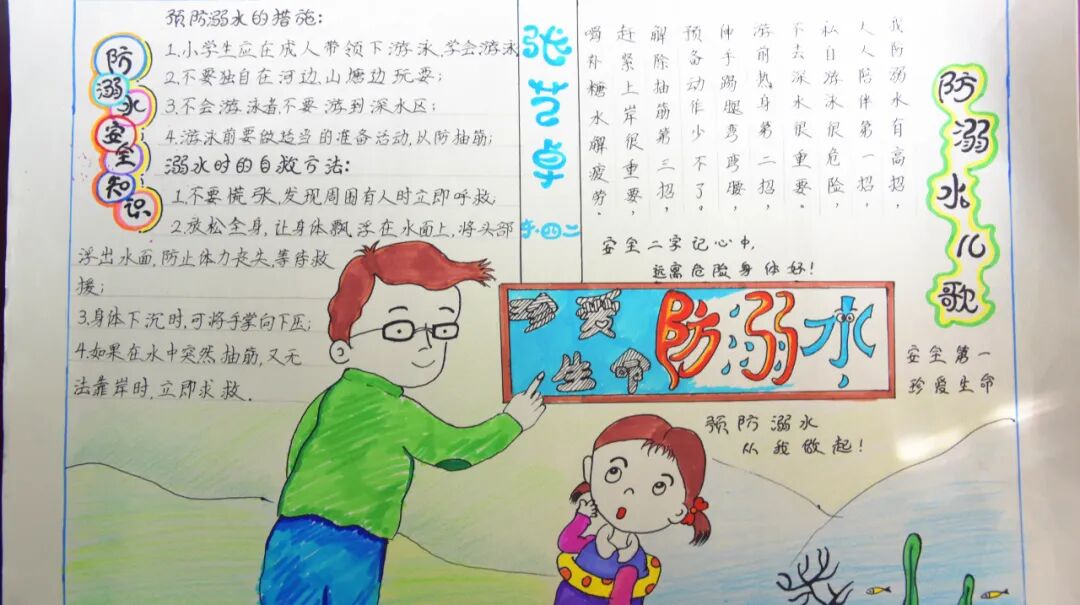 防溺水安全知识
预防溺水的措施:
1.小学生应在成人带领下游泳,学会游泳
2.不要独自在河边,山塘边玩耍;
3.不会游泳者,不要游到深水区;
4.游泳前要做适当的准备活动,从防抽筋;
溺水时的自救方法:
1.不要慌张,发现周围有人时立即呼救;
2.放松全身,让身体飘浮在水面上,将头部
浮出水面,防止体力丧失,等待救
援;
3.身体下沉时,可将手掌向下压;
4.如果在水中突然抽筋,又无
法靠岸时,立即求救.
张艺卓
防溺水儿歌
我防溺水有高招,
人人陪伴第一招,
私自游泳很危险,
不去深水很重要。
游前热身第二招,
伸手踢腿弯弯腰,
预备动作少不了。
解除抽筋第三招,
赶紧上岸很重要,
喝补糖水解疲劳。
安全二字记心中,
远离危险身体好!
珍爱
生命
防溺水
安全第一
珍爱生命
预防溺水
从我做起!